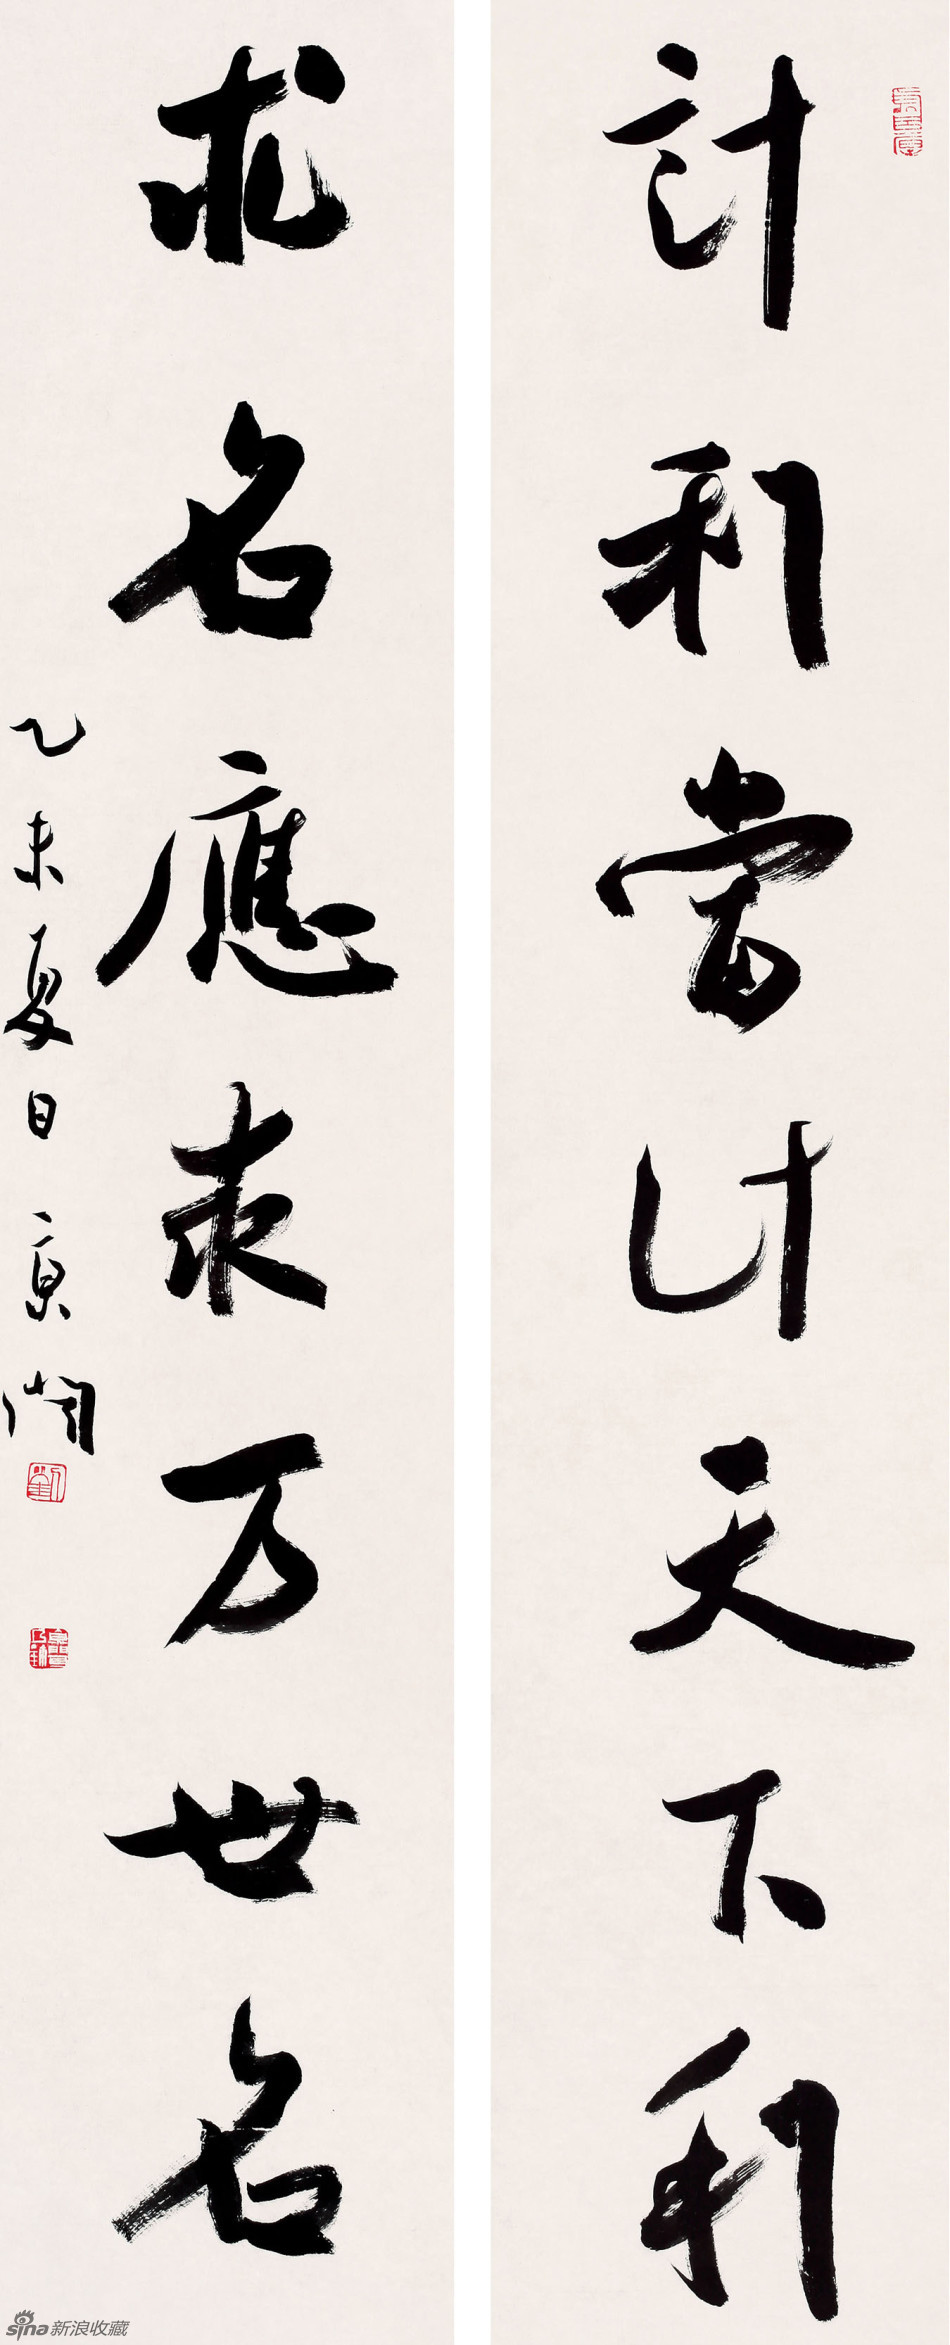 計利當計天下利
求名應求万世名
乙未夏日京閩
sina新浪收藏